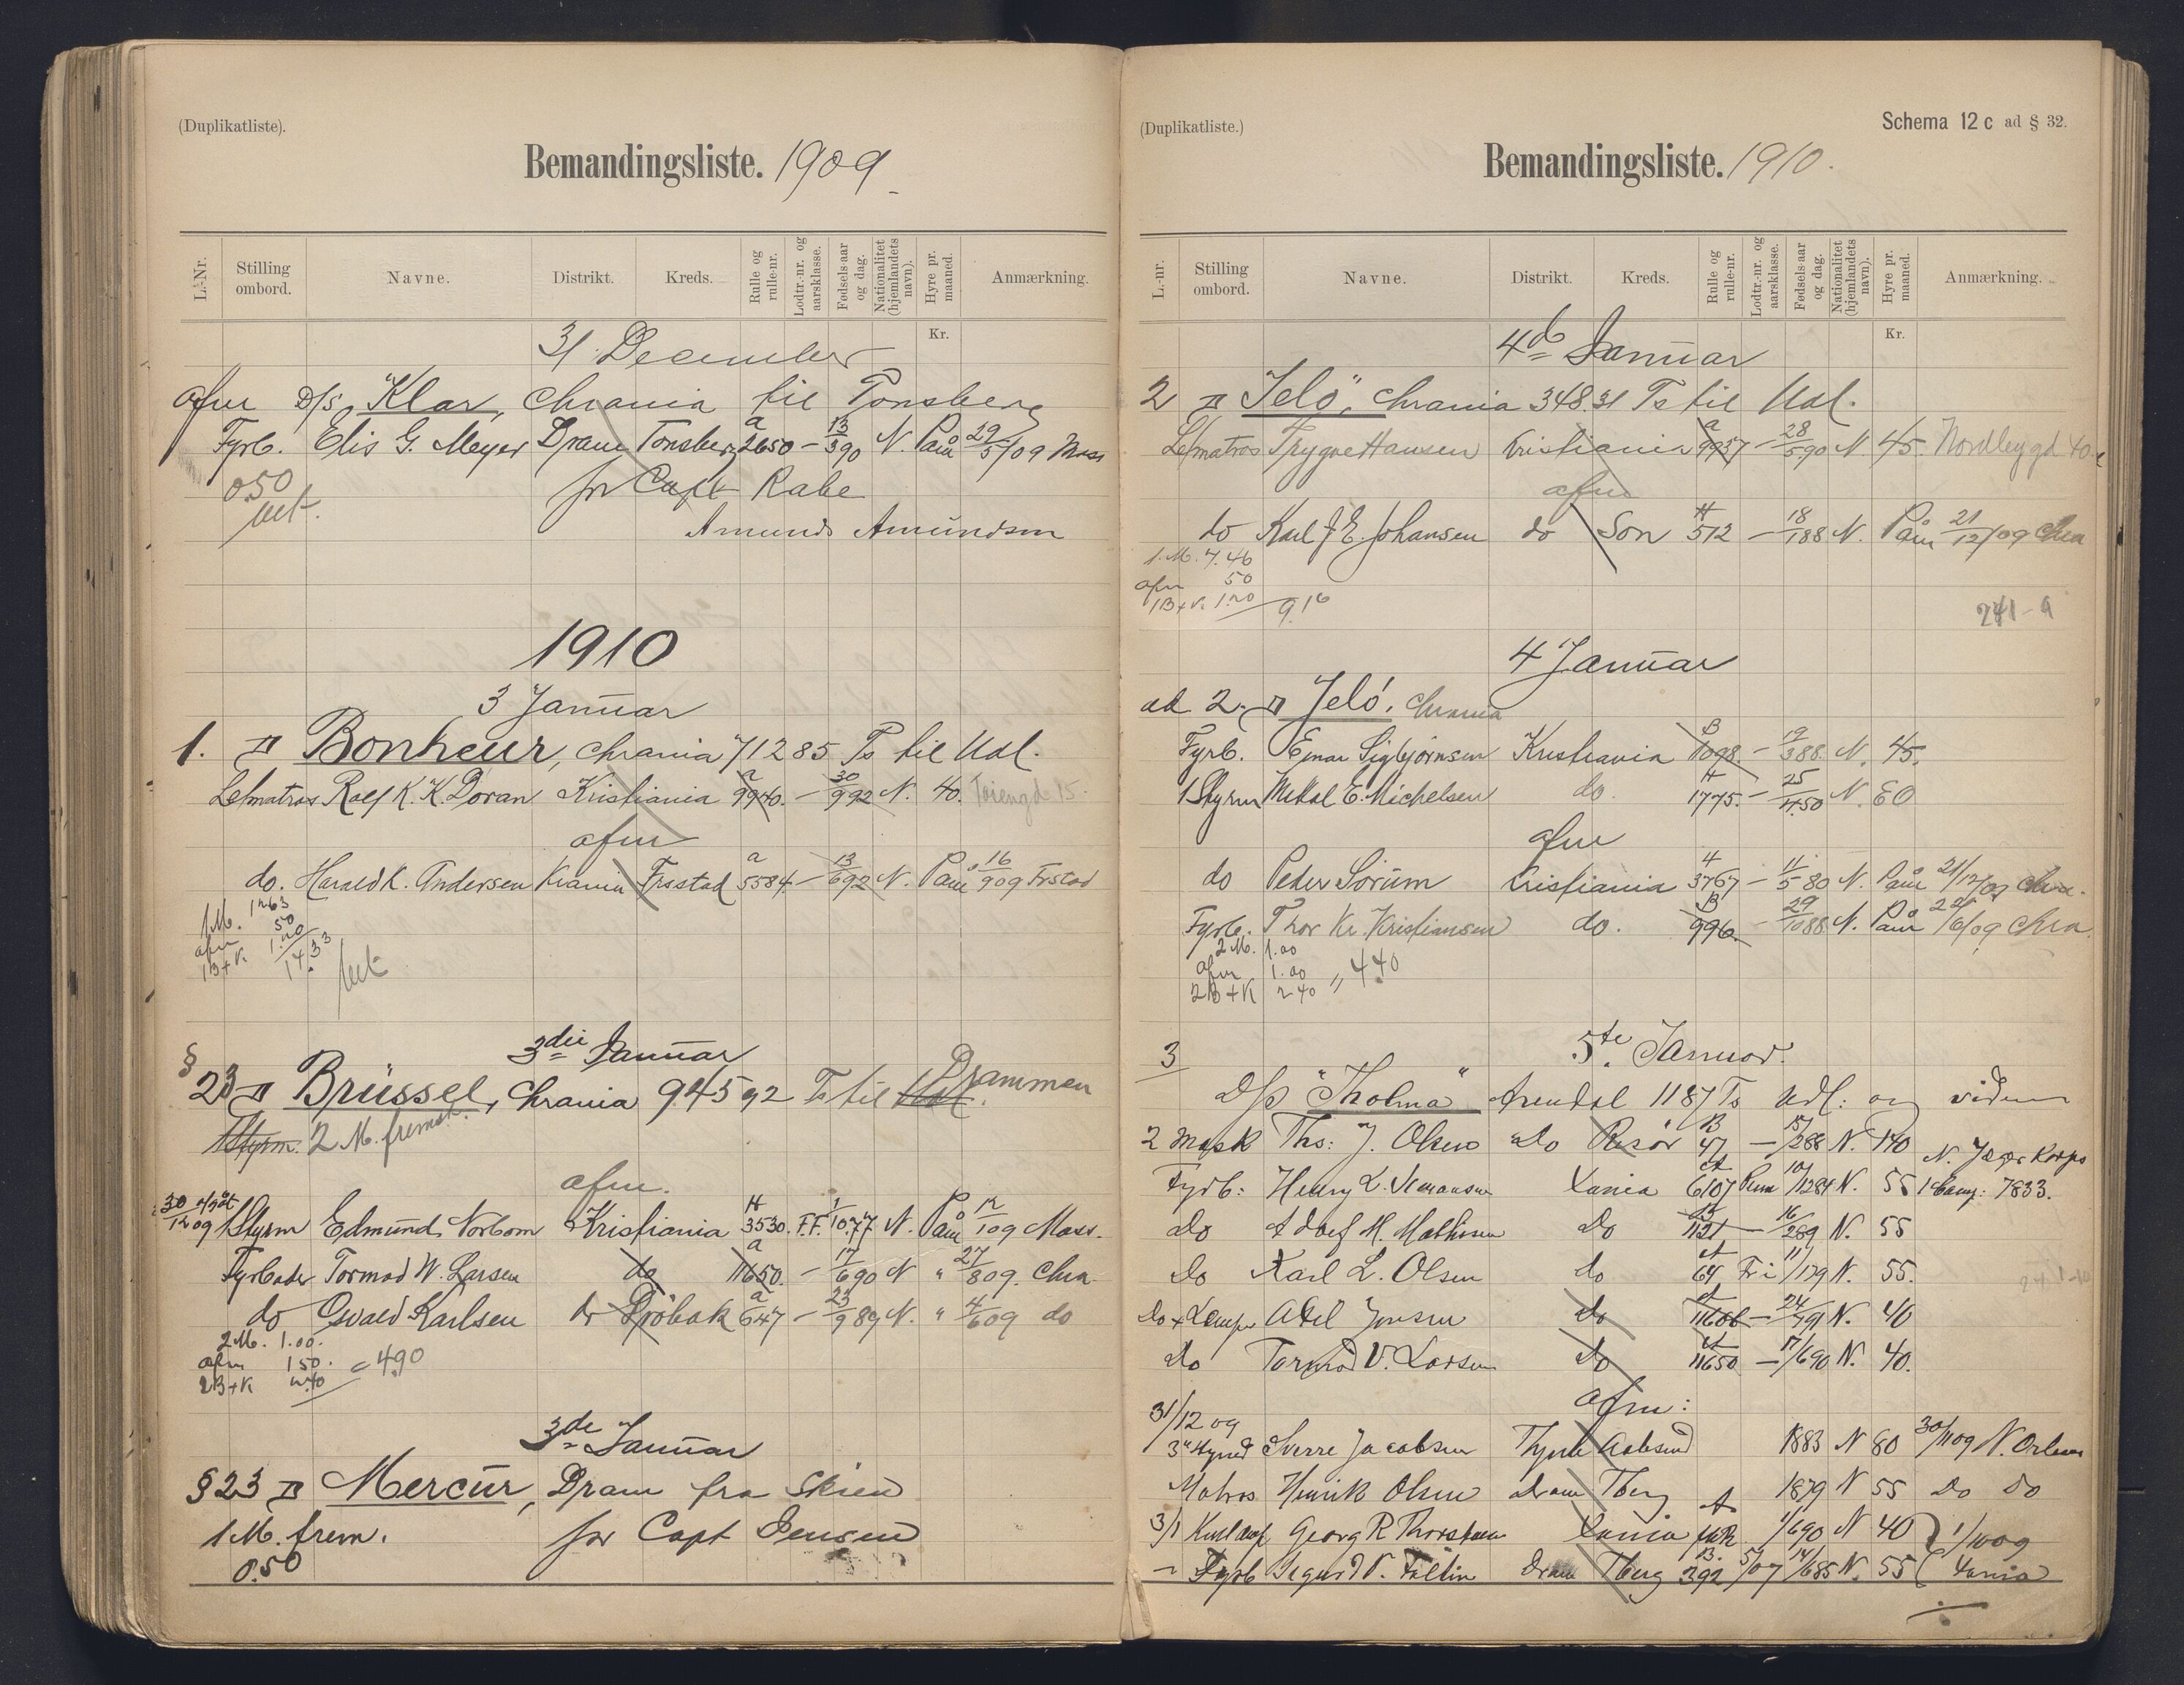 (Duplikatliste).
Bemandingsliste. 1909
L.-Nr. Stilling ombord. Navne. Distrikt. Kreds. Rulle og rulle-nr. Lodtr.-nr. og aarsklasse. Fødsels-aar og dag. Nationalitet (hjemlandets navn). Hyre pr. maaned. Anmærkning.
Kr.
31 December
afm D/S "Klar, Chrania til Tonsberg
Fyrb. Elis G. Meyer Dram Tonsberg a 2650 - 13/5 90 N. Paam 29/5/09 Moss
0.50
for Capt Rabe
Amunds Amundsen
1910
3 Januar
1. Bonheur, Chrania 71285 Ts til Udl.
Letmatros Ralf K. K. Doran Kristiania a 9940. - 30/9 92 N. 40.
afm
do. Harald K. Andersen Krania Frstad a 5584 - 13/6 92 N. Paam 16/9 09 Frstad
1 M. 12 63
afm 50
1B+K. 1.20
14.33
3die Januar
§ 23 Brüssel, Chrania 945 92 Ts til Udl. Drammen
1 Styrm. 2 M. fremst.
afm.
30/12 09 1 Styrm Edmund Norbom Kristiania H 3530. F.F. 1/10 77 N. Paam 12/1 09 Moss.
Fyrbøder Tormod W. Larsen do a 11650. - 17/6 90 N " 27/8 09. Chra.
do Osvald Karlsen do Drøbak a 647 - 23/9 89 N. " 4/6 09 do
2 M. 1.00.
afm 1 50. = 4.90
2B+K 2.40
3de Januar
§ 23 Mercur, Dram fra Skien
1 M. frem. for Capt Jensen
0.50
(Duplikatliste.)
Schema 12 c ad § 32.
Bemandingsliste. 1910.
L.-nr. Stilling ombord. Navne. Distrikt. Kreds. Rulle og rulle-nr. Lodtr.-nr. og aarsklasse. Fødsels-aar og dag. Nationalitet (hjemlandets navn). Hyre pr. maaned. Anmærkning.
Kr.
4de Januar
2 "Jelö", Chrania 348.31 Ts til Udl.
Letmatros Trygve Hansen Kristiania a 9937 - 28/5 90 N. 45 Nordbygd 40
afm
do Karl J. E. Johansen do Son H 512 - 18/1 88 N. Paam 21/12/09 Chra
1. M. 7.46
afm 50
1B+K. 1.20 9.16
241 - 9
4 Januar
ad 2. Jelö. Chrania
Fyrb. Einar Sigbjørnsen Kristiania B 1098. - 19/3 88. N. 45.
1 Styrm Mikal E. Michelsen do. H 1775. - 25/4 50 N. 80
afm
do Peder Sörum Kristiania H 3767 - 11/5 80 N. Paam 21/12/09 Chra.
Fyrb. Thor Kr. Kristiansen do. B 996. - 29/10 88 N. Paam /6/09 Chra.
2 M. 1.00
afm 1.00 " 4.40
2B+K 2 40
3 5te Januar.
D/S "Tholma" Arendal 1187 Ts Udl: og videre
2 Mask Ths: J. Olsen do Risör B 47 - 15/2 88 N. 140
Fyrb: Henry L. Kania A 6107 10/12 84 N. 55 N. Jæger Korps 1 Comp: 7833.
Do Adolf H. Mathisen Do 1121 - 16/2 89 N. 55
Do Karl L. Olsen do A 64 Fri 11/1 79 N. 55.
Do + Lemper Axel Jensen do A 11606 - 24/ 91 N. 40
Do Tormod V. Larsen Do A 11650 - 17/6 90 N. 40.
afm:
31/12 09
3die Styrmd Sverre Jacobsen Aalesund 1883 N 80 30/11 09 N. Orleans
Matros Henrik Olsen Dram Tberg 1879 N 55 Do Do
3/1 Georg R Thorsteen Kania A 1/6 90 N 40 1/10 09
- Fyrb Sigurd V. Fallin Dram Tberg B. 392 5/07 14/6 85 N. 55 Kania